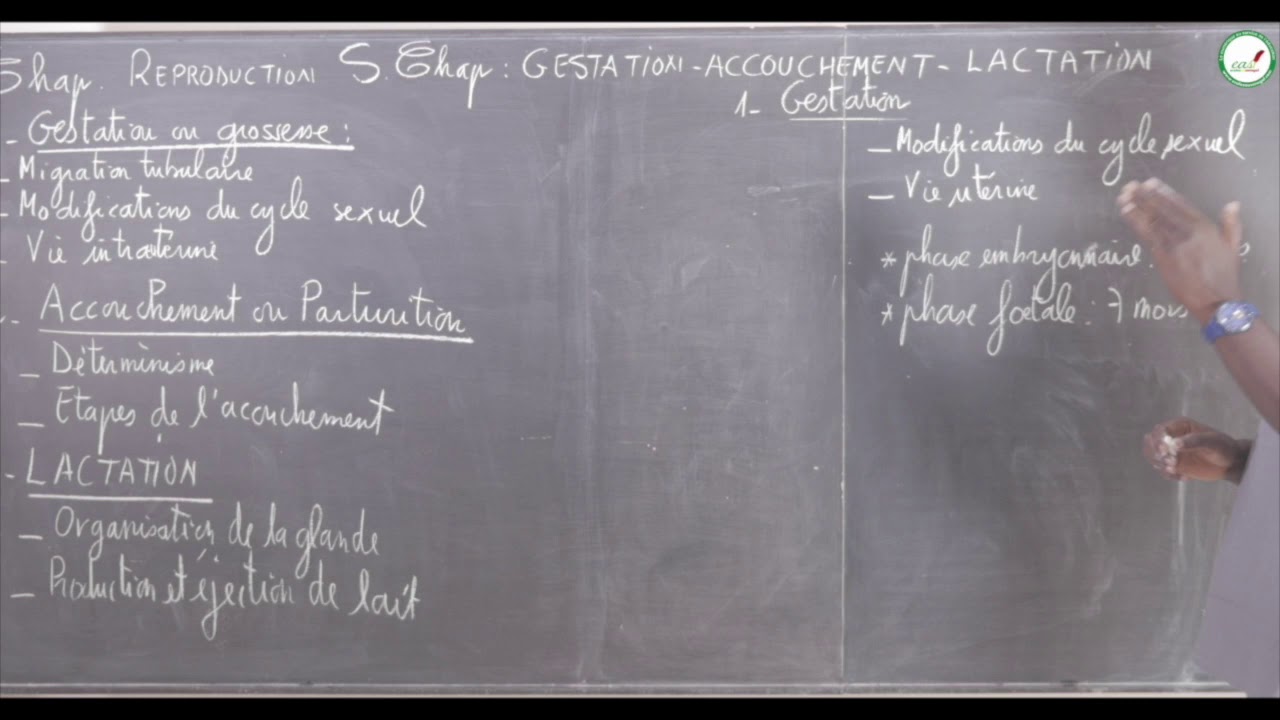 Chap. REPRODUCTION S. Chap : GESTATION - ACCOUCHEMENT - LACTATION
- Gestation ou grossesse :
- Migration tubulaire
- Modifications du cycle sexuel
- Vie intrautérine
- Accouchement ou Parturition
- Déterminisme
- Etapes de l'accouchement
- LACTATION
- Organisation de la glande
- Production et éjection de lait
1 - Gestation
- Modifications du cycle sexuel
- Vie utérine
* phase embryonnaire :
* phase foetale : 7 mois
eas